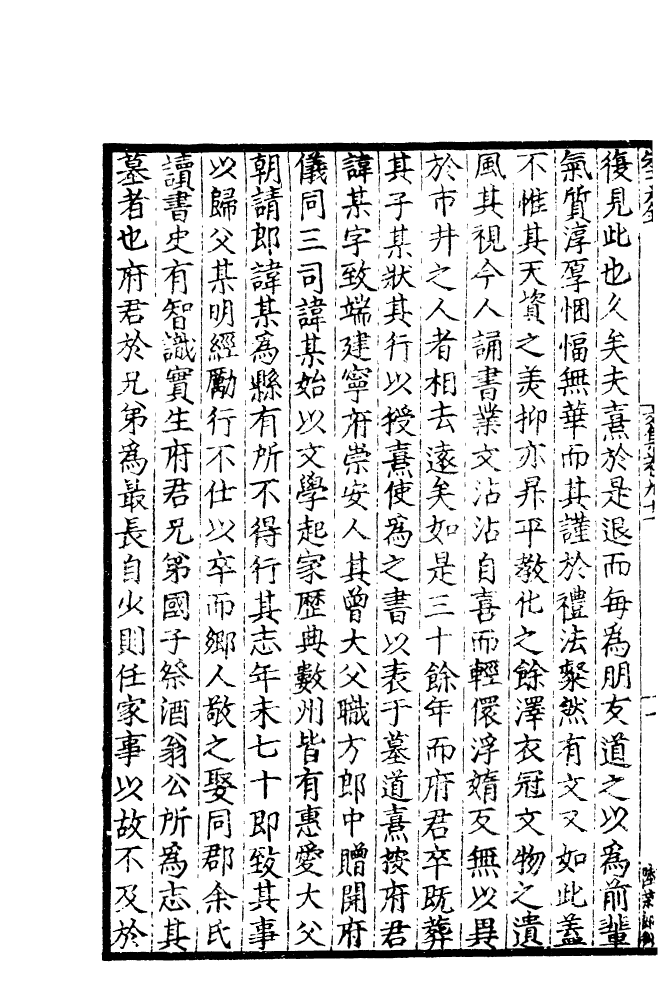 復見此也久矣夫熹於是退而每為朋友道之以為前輩
氣質淳厚悃愊無華而其謹於禮法粲然有文又如此蓋
不惟其天資之美抑亦昇平教化之餘澤衣冠文物之遺
風其視今人誦書業文沾沾自喜而輕儇浮媠叐無以異
於市井之人者相去遠矣如是三十餘年而府君卒既葬
其子某狀其行以授熹使為之書以表于墓道熹按府君
諱某字致端建寧府崇安人其曾大父職方郎中贈開府
儀同三司諱某始以文學起家歷典數州皆有惠愛大父
朝請郎諱某為縣有所不得行其志年未七十即致其事
以歸父某明經勵行不仕以卒而鄉人敬之娶同郡余氏
讀書史有智識實生府君兄弟國子祭酒翁公所為志其
墓者也府君於兄弟為最長自少則任家事以故不及於